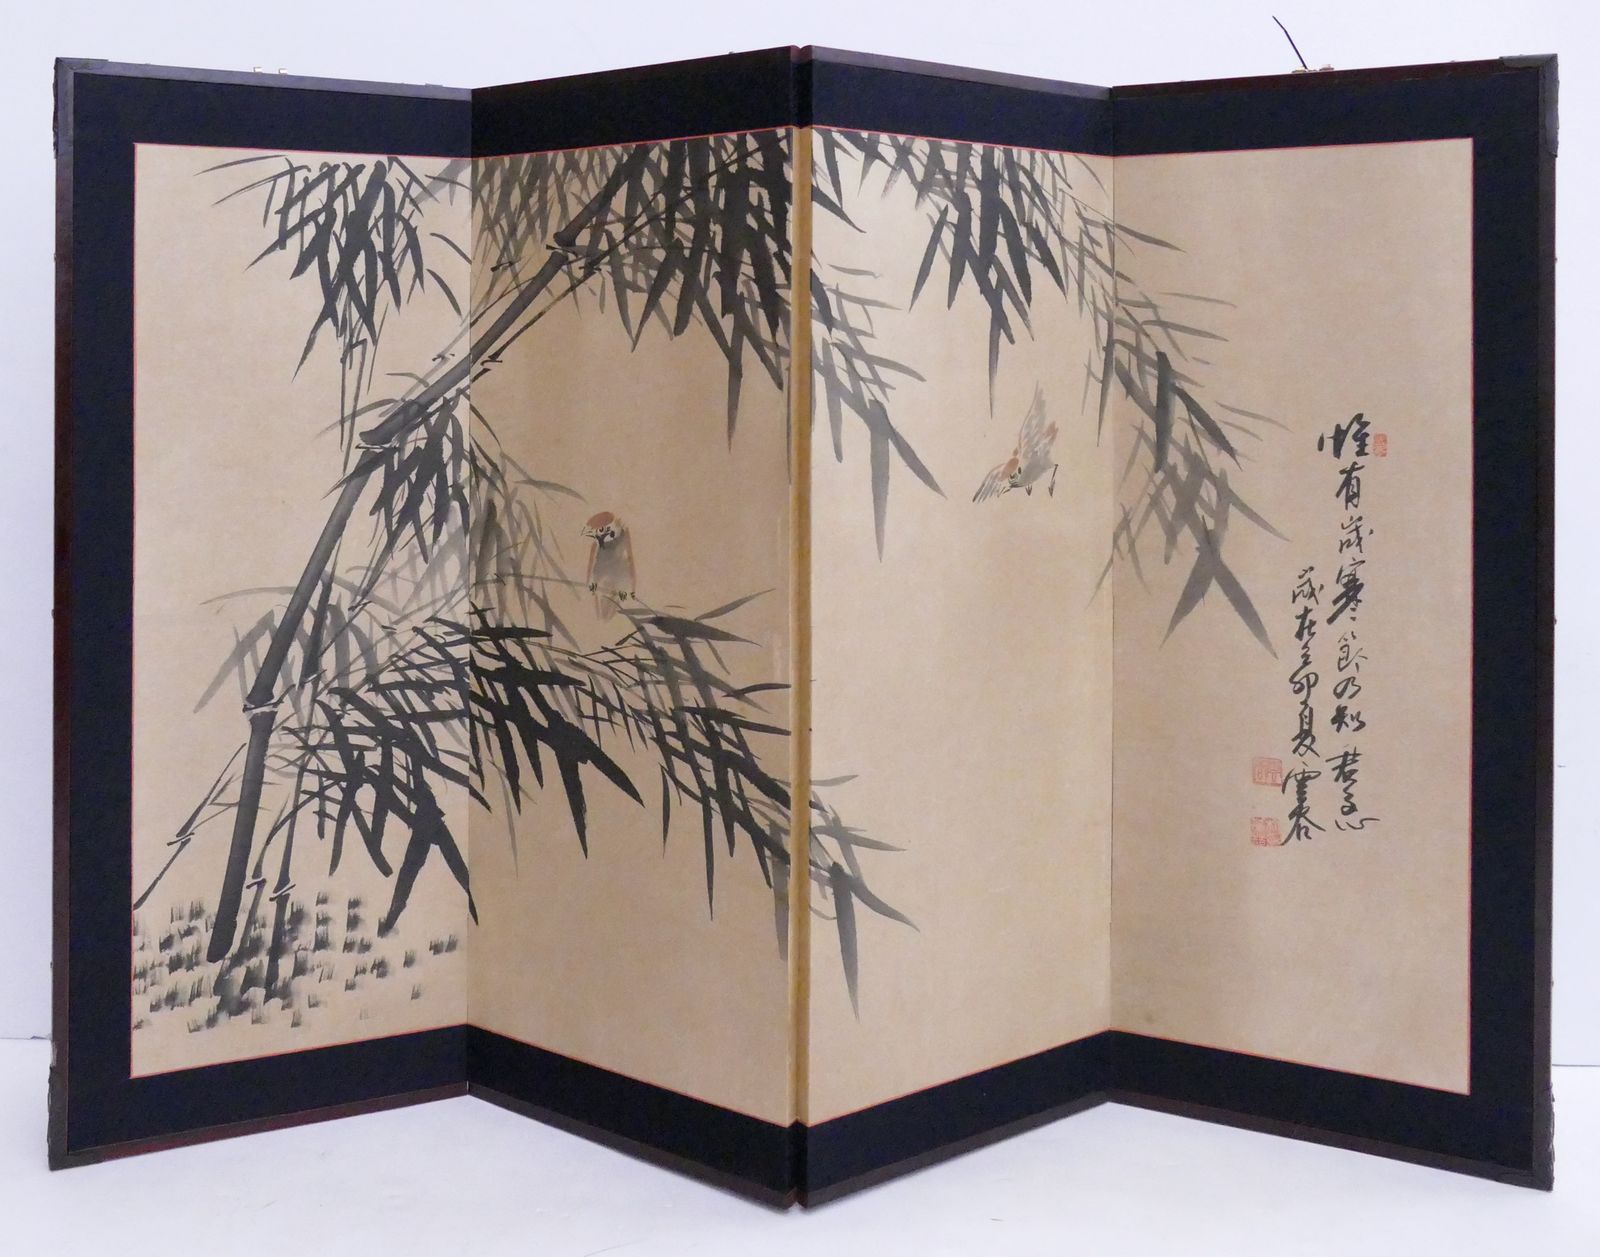 惟有歳寒節乃知君子心
歳在乙卯夏雲谷